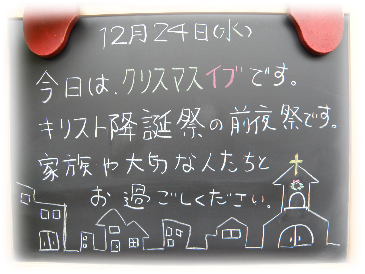 12月24日(水)
今日は、クリスマスイブです。
キリスト降誕祭の前夜祭です。
家族や大切な人たちと
お過ごしください。